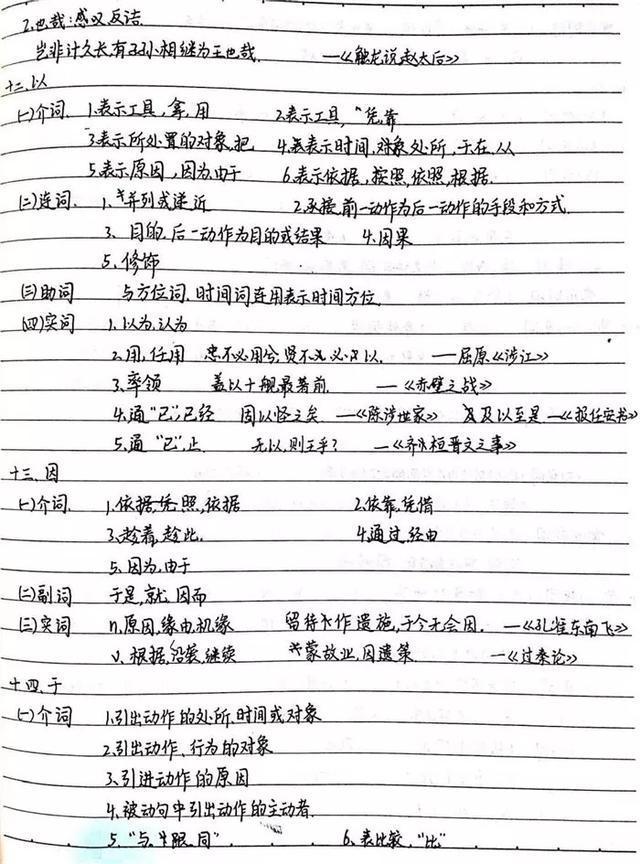 2.也哉:感叹反诘.
岂非计久长,有子孙相继为王也哉. —《触龙说赵太后》
十二.以
(一)介词. 1.表示工具,拿,用 2.表示工具,"凭靠
3.表示所处置的对象,把 4.表示时间.对象处所,于在,从
5.表示原因,因为,由于 6.表示依据.按照,依照,根据.
(二)连词. 1.并列或递近 2.承接,前一动作为后一动作的手段和方式.
3.目的,后一动作为目的或结果 4.因果
5.修饰
(三)助词 与方位词.时间词连用表示时间方位.
(四)实词 1.以为,认为
2.用,任用 忠不必用兮,贤不必以. —屈原《涉江》
3.率领 盖以十舰最著前. —《赤壁之战》
4.通"已",已经 固以怪之矣 —《陈涉世家》 及以至是 —《报任安书》
5.通"已",止 无以,则王乎? —《齐桓晋文之事》
十三.因
(一)介词. 1.依据 照,依据 2.依靠,凭借
3.趁着,趁此. 4.通过,经由
5.因为,由于
(二)副词 于是,就,因而
(三)实词 n.原因,缘由,机缘 留待作遗施,于今无会因. —《孔雀东南飞》
v.根据,沿袭,继续 蒙故业,因遗策. —《过秦论》
十四.于
(一)介词 1.引出动作的处所,时间或对象
2.引出动作、行为的对象
3.引进动作的原因
4.被动句中引出动作的主动者.
5."与,跟,同". 6.表比较,"比"